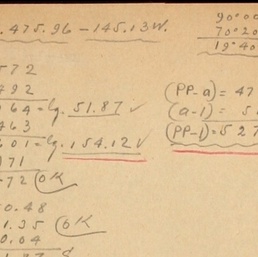 .475.96 - 145.13W.
90°00
70°20
19°40
572
492
164 = lg. 51.87 ✓
463
601 = lg. 154.12 ✓
171
.72 OK
(PP-a) = 47
(a-1) = 5
(PP-1) = 527
0.48
1.35 OK
0.04